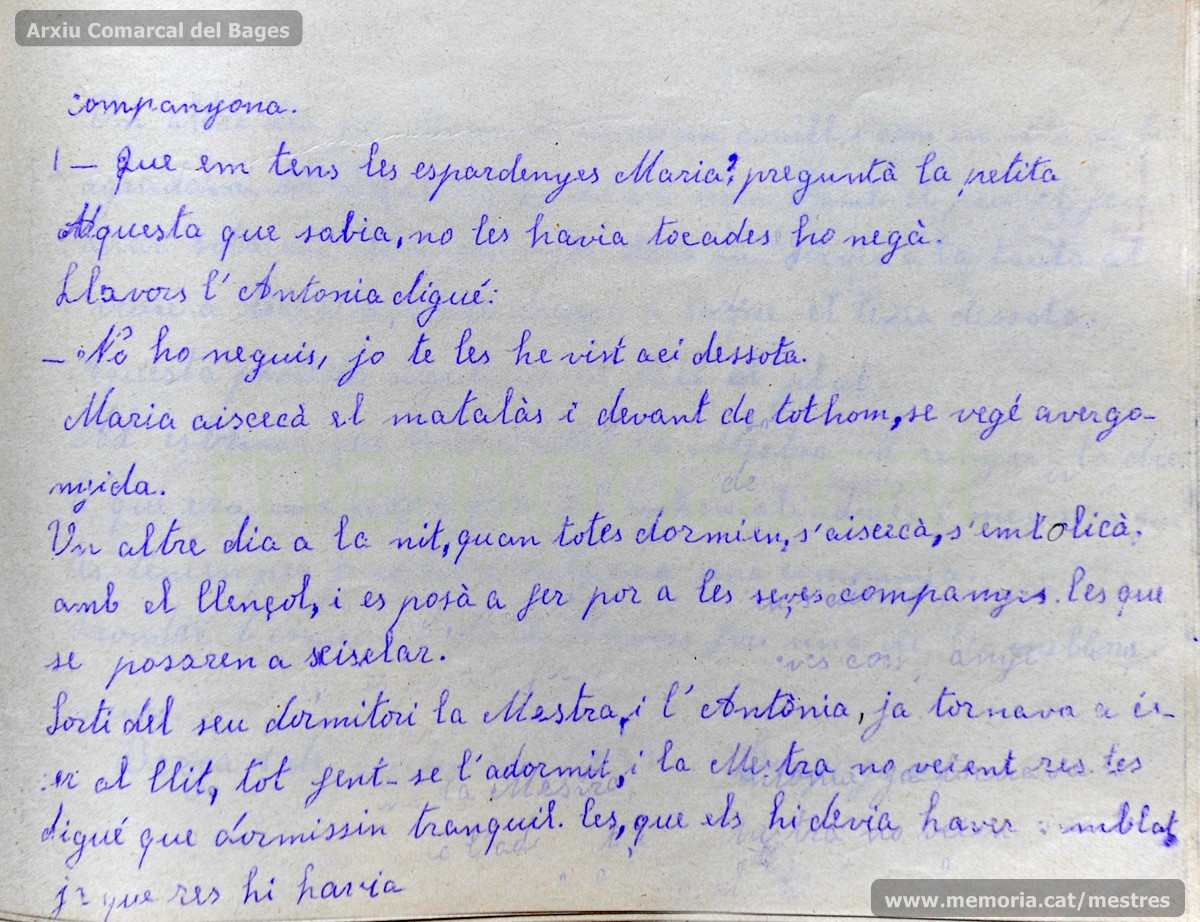 Arxiu Comarcal del Bages
companyona.
— Que em tens les espardenyes Maria?, preguntà la petita
Aquesta que sabia, no les havia tocades ho negà.
Llavors l'Antonia digué:
— No ho neguis, jo te les he vist ací dessota.
Maria aiscecà el matalàs i devant de tothom, se vegé avergo-
nyida.
Un altre dia a la nit, quan totes dormien, s'aisecà, s'embolicà.
amb el llençol, i es posà a fer por a les seves companyes. les que
se posaren a xiselar.
Sorti del seu dormitori la Mestra, i l'Antònia, ja tornava a és-
er al llit, tot fent-se l'adormit, i la Mestra no veient res les
digué que dormissin tranquil.les, que els hi devia haver semblat,
ja que res hi havia
www.memoria.cat/mestres